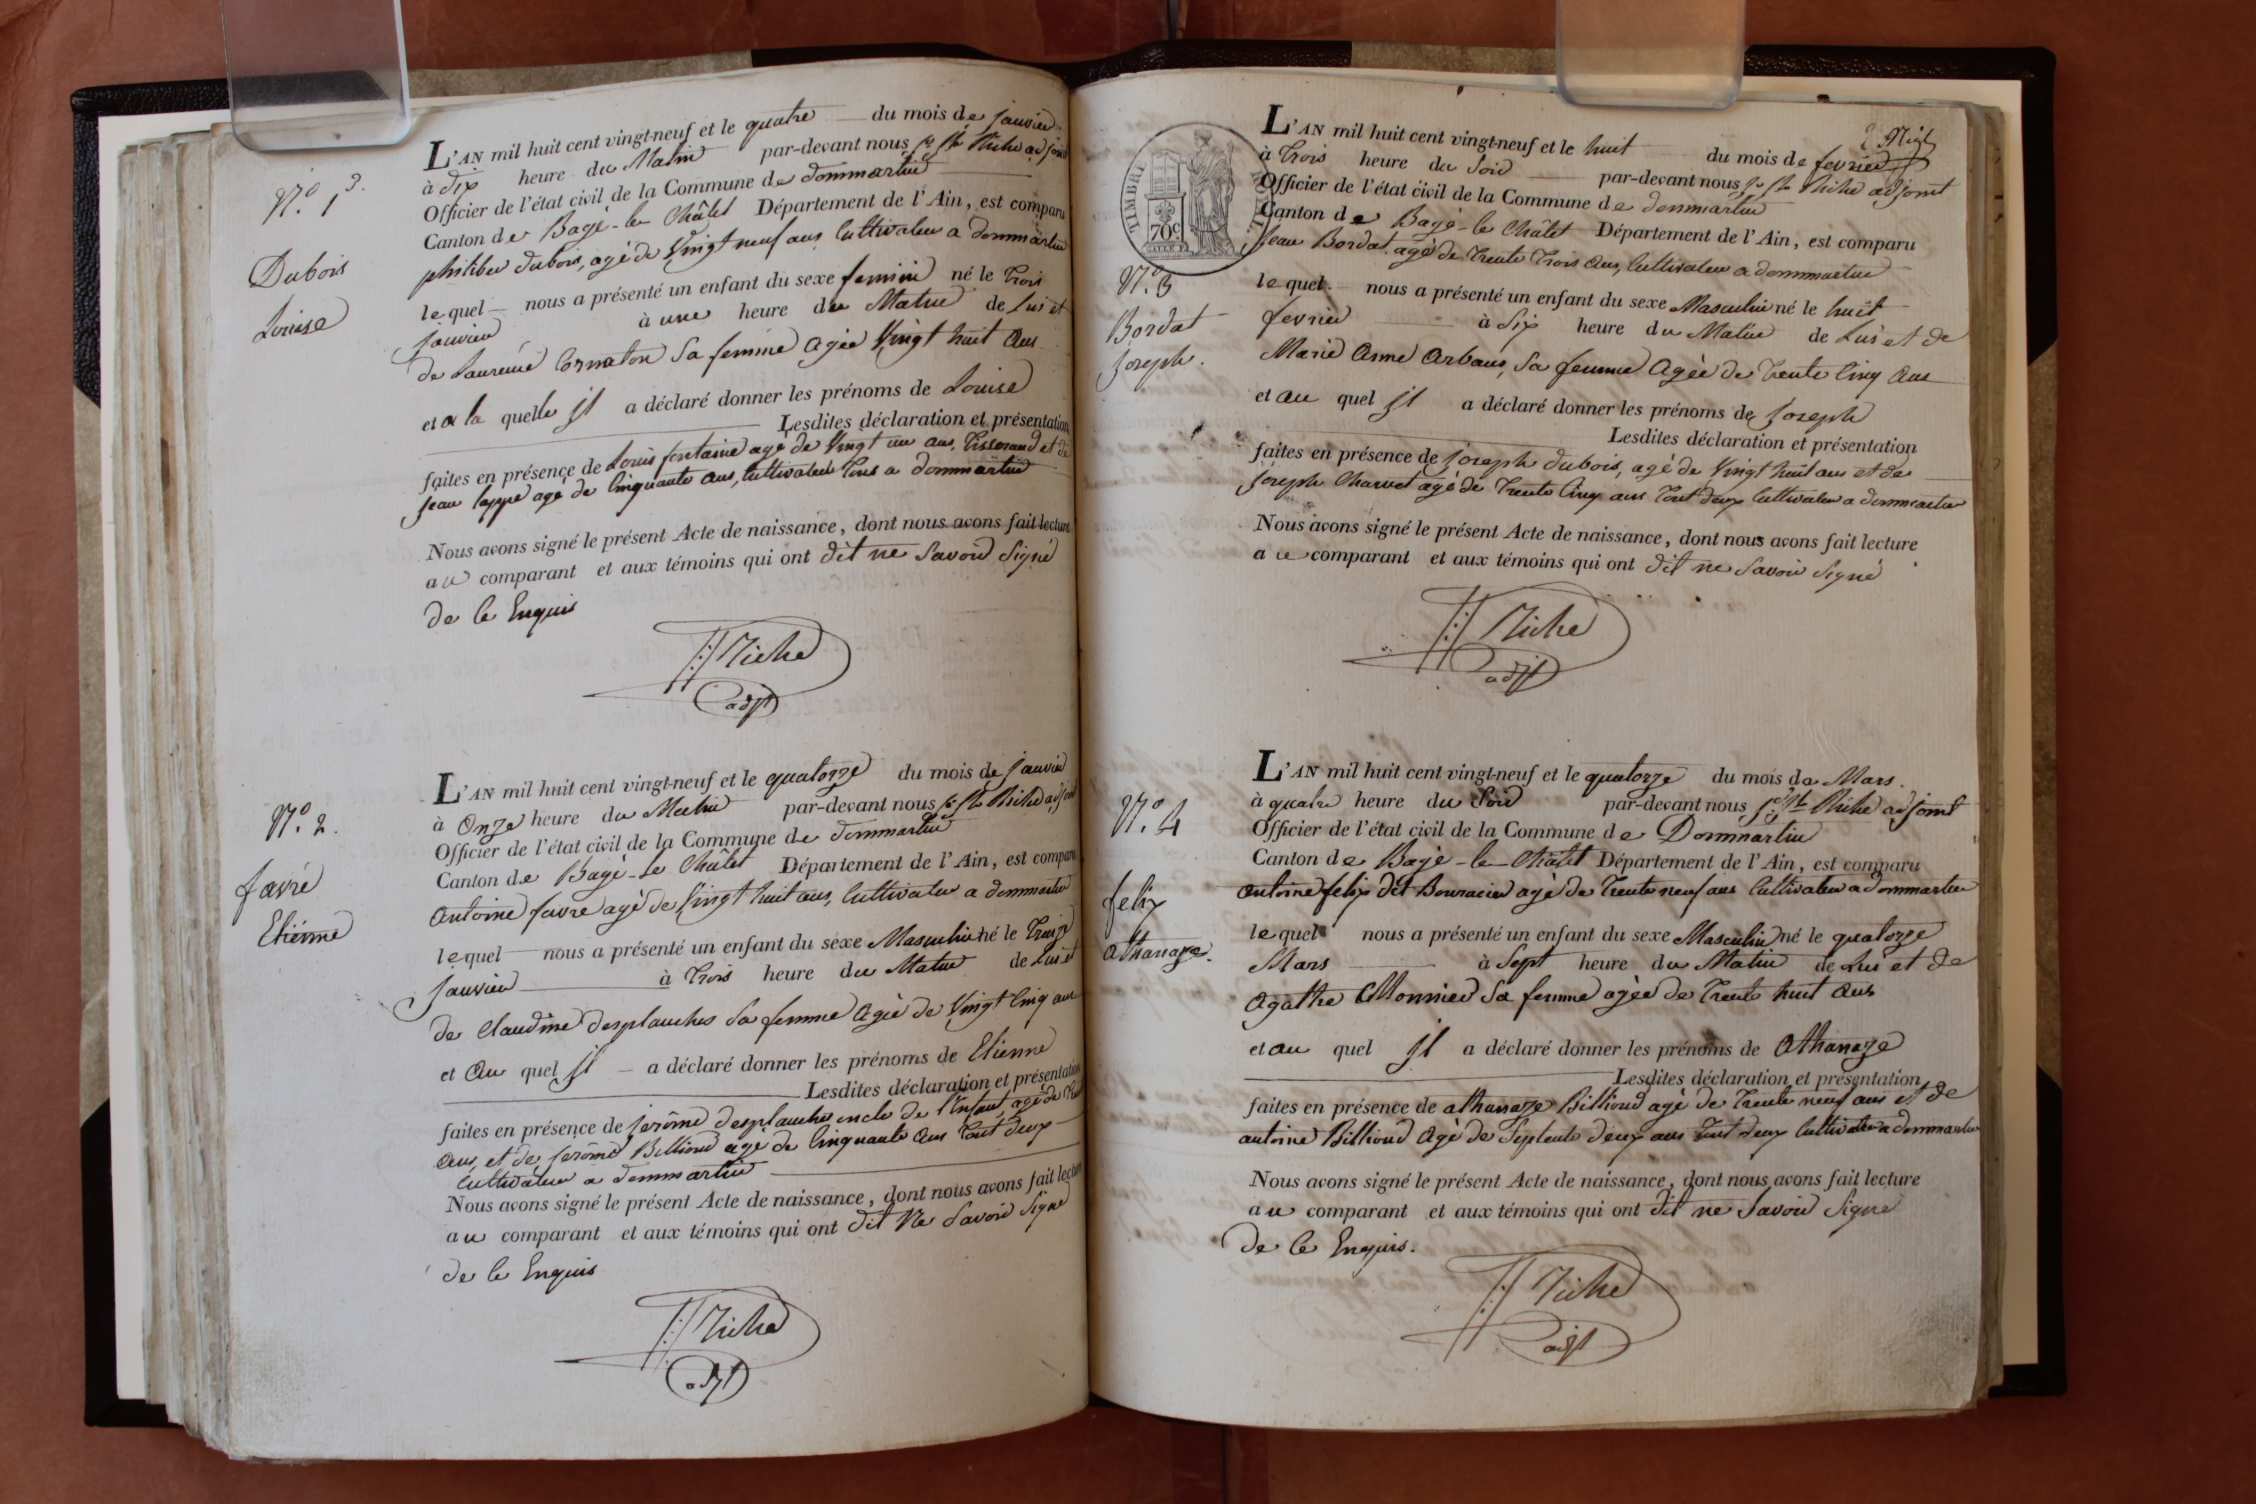 N.º 1er
Dubois
Louise
L'AN mil huit cent vingt-neuf et le quatre du mois de janvier
à dix heure du Matin par-devant nous jn Bte Niche adjoint
Officier de l'état civil de la Commune de dommartin
Canton de Bagé-le Châtel Département de l'Ain, est comparu
philiber dubois, agé de Vingt neuf ans Cultivateur a dommartin
lequel nous a présenté un enfant du sexe feminin né le trois
janvier à une heure du Matin de Lui et
de Laurence Cornaton Sa femme agée Vingt huit Ans
et a la quelle il a déclaré donner les prénoms de Louise
Lesdites déclaration et présentation
faites en présence de Louis fontaine agé de Vingt un ans, tisserand et de
jean agé de Cinquante ans, Cultivateur tous a dommartin
Nous avons signé le présent Acte de naissance, dont nous avons fait lecture
au comparant et aux témoins qui ont dit ne Savoir Signé
de Ce Enquis
Niche
adjt
N.º 2.
favre
Etienne
L'AN mil huit cent vingt-neuf et le quatorze du mois de janvier
à Onze heure du Matin par-devant nous jn Bte Niche adjoint
Officier de l'état civil de la Commune de dommartin
Canton de Bagé-le Châtel Département de l'Ain, est comparu
Antoine favre agé de Vingt huit ans, Cultivateur a dommartin
lequel nous a présenté un enfant du sexe Masculin né le Treize
janvier à trois heure du Matin de Lui et
de Claudine desplanches Sa femme Agée de Vingt Cinq ans
et Au quel il a déclaré donner les prénoms de Etienne
Lesdites déclaration et présentation
faites en présence de jerôme desplanches oncle de l'Enfant, agé de
Ans, et de jerôme Billioud agé de Cinquante Ans tout deux
Cultivateur a dommartin
Nous avons signé le présent Acte de naissance, dont nous avons fait lecture
au comparant et aux témoins qui ont dit Ne Savoir Signé
de Ce Enquis
Niche
adjt
TIMBRE
70c
N.º 3
Bordat
Joseph.
L'AN mil huit cent vingt-neuf et le huit du mois de fevrier
à trois heure du Soir par-devant nous jn Bte Niche adjoint
Officier de l'état civil de la Commune de dommartin
Canton de Bagé-le Châtel Département de l'Ain, est comparu
Jean Bordat agé de trente trois ans, Cultivateur a dommartin
lequel nous a présenté un enfant du sexe Masculin né le huit
fevrier à Six heure du Matin de Lui et de
Marie Anne Arbans, Sa femme Agée de trente Cinq Ans
et au quel il a déclaré donner les prénoms de Joseph
Lesdites déclaration et présentation
faites en présence de joseph dubois, agé de Vingt huit ans et de
joseph Charvet agé de trente Cinq ans tout deux Cultivateur a dommartin
Nous avons signé le présent Acte de naissance, dont nous avons fait lecture
au comparant et aux témoins qui ont dit ne Savoir Signé
Niche
adjt
N.º 4
felix
Athanaze.
L'AN mil huit cent vingt-neuf et le quatorze du mois de Mars.
à quatre heure du Soir par-devant nous jn Bte Niche adjoint
Officier de l'état civil de la Commune de Dommartin
Canton de Bagé-le-Châtel Département de l'Ain, est comparu
antoine felix dit Bouracier agé de trente neuf ans Cultivateur a dommartin
lequel nous a présenté un enfant du sexe Masculin né le quatorze
Mars à Sept heure du Matin de Lui et de
Agathe Monnier Sa femme agée de trente huit Ans
et au quel il a déclaré donner les prénoms de Athanaze
Lesdites déclaration et présentation
faites en présence de athanaze Billioud agé de trente neuf ans et de
antoine Billioud Agé de Septente deux ans tout deux Cultivateur a dommartin
Nous avons signé le présent Acte de naissance, dont nous avons fait lecture
au comparant et aux témoins qui ont dit ne Savoir Signé
de Ce Enquis.
Niche
adjt